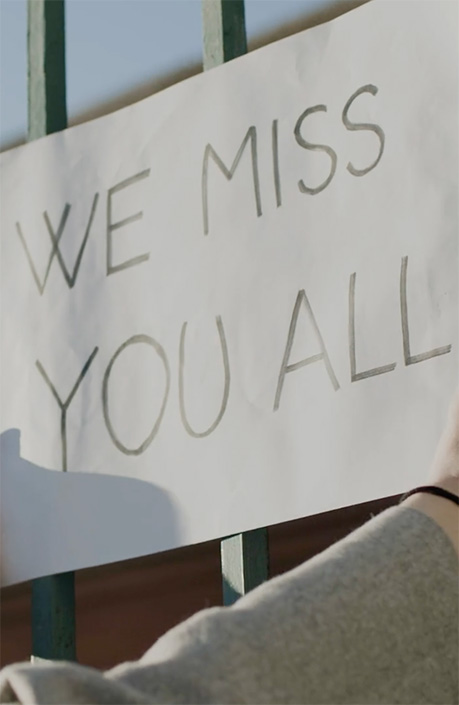 WE MISS
YOU ALL